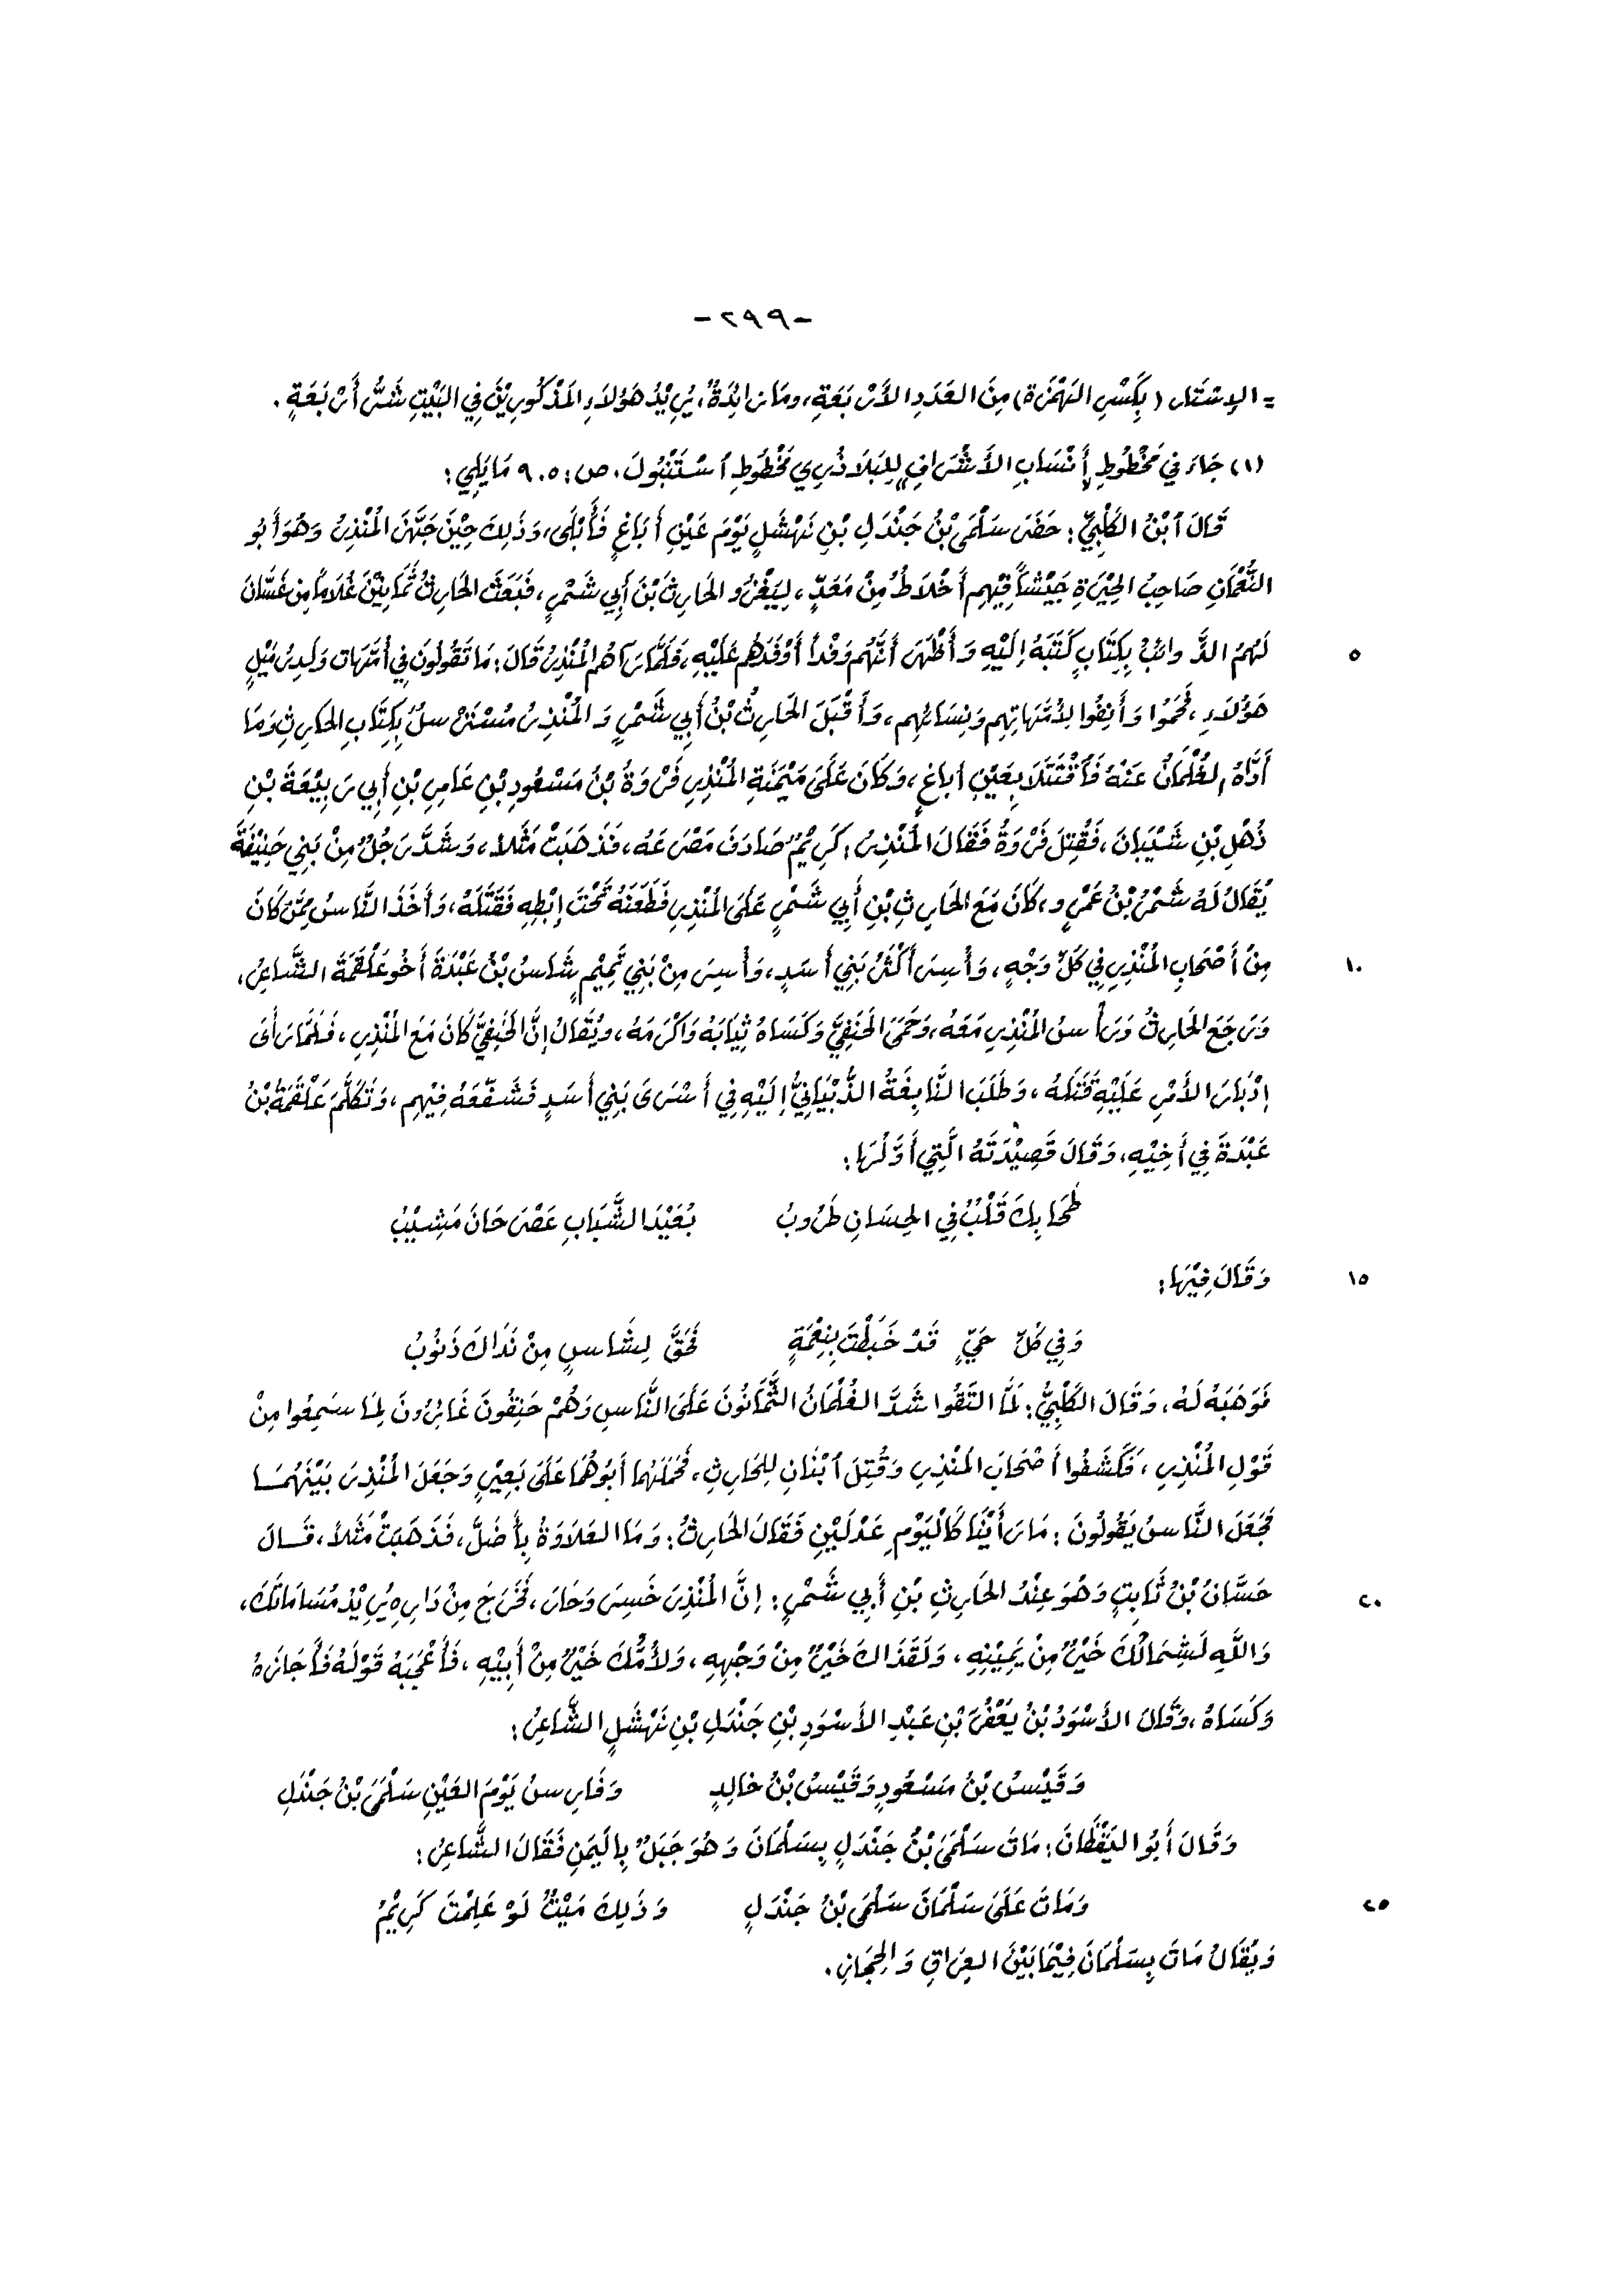 -٢٩٩-
= الإِسْتَار (بِكَسْرِ الهَمْزَة) مِنَ العَدَدِ الأَرْبَعَةِ، ومَا زَائِدَةٌ، يُرِيْدُ هَؤُلاَءِ المَذْكُورِيْنَ فِي البَيْتِ شَرُّ أَرْبَعَةٍ.
(١) جَاءَ فِي مَخْطُوطِ أَنْسَابِ الأَشْرَافِ لِلبَلاَذُرِي مَخْطُوطِ ٱسْتَنْبُولَ. ص: ٩٠٥ مَايَلِي:
قَالَ ٱبْنُ الكَلْبِيِّ: حَضَرَ سَلْمَى بْنُ جَنْدَلِ بْنِ نَهْشَلٍ يَوْمَ عَيْنِ أَبَاغٍ فَأَبْلَى، وَذَلِكَ حِيْنَ جَهَّزَ المُنْذِرُ وَهُوَ أَبُو
النُّعْمَانِ صَاحِبُ الحِيْرَةِ جَيْشَاً فِيْهِم أَخْلاَطٌ مِنْ مَعَدٍّ، لِيَغْزُو الحَارِثَ بْنَ أَبِي شَمْرٍ، فَبَعَثَ الحَارِثُ ثَمَانِيْنَ غُلاَمَاً مِن غَسَّانَ
٥ لَهُمُ الذَّوائبُ بِكِتَابٍ كَتَبَهُ إِلَيْهِ وَأَظْهَرَ أَنَّهُم وَفْداً أَوْفَدَهُم عَلَيْهِ، فَلَمَّا رَآهُم المُنْذِرُ قَالَ: مَا تَقُولُونَ فِي أُمَّهَات وَلَدِنَ مِثْلٍ
هَؤُلاَءِ، فَحَمُوا وَأَنِفُوا لِأُمَّهَاتِهِم وَنِسَائهم، وَأَقْبَلَ الحَارِثُ بْنُ أَبِي شَمْرٍ وَالمُنْذِرُ مُسْتَرْسِلٌ بِكِتَابِ الحَارِثِ وَمَا
أَدَّاهُ الغُلْمَانُ عَنْهُ فَٱقْتَتَلاَ بِعَيْنِ أباغٍ، وَكَانَ عَلَى مَيْمَنَةِ المُنْذِرِ فَرْوَةُ بْنُ مَسْعُودِ بْنِ عَامِرِ بْنِ أَبِي رَبِيْعَةَ بْنِ
ذُهْلِ بْنِ شَيْبَانَ، فَقُتِلَ فَرْوَةُ فَقَالَ المُنْذِرُ: كَرِيْمٌ صَادَفَ مَصْرَعَهُ، فَذَهَبَتْ مَثَلاً، وَشَدَّ رَجُلٌ مِنْ بَنِي حَنِيْفَةَ
يُقَالُ لَهُ شَمْرُ بْنُ عَمْرٍو، كَانَ مَعَ الحَارِثِ بْنِ أَبِي شَمْرٍ عَلَى المُنْذِرِ فَطَعَنَهُ تَحْتَ إِبْطِهِ فَقَتَلَهُ، وَأَخَذَ النَّاسُ مِمَّن كَانَ
١٠ مِنْ أَصْحَابِ المُنْذِرِ فِي كُلِّ وَجْهٍ، وَأُسِرَ أَكْثَرُ بَنِي أَسَدٍ، وَأُسِرَ مِنْ بَنِي تَمِيْمٍ شَاسُ بْنُ عَبْدَةَ أَخُو عَلْقَمَةَ الشَّاعِرُ،
وَرَجَعَ الحَارِثُ وَرَأسُ المُنْذِرِ مَعَهُ، وَحَمَى الحَنَفِيَّ وَكَسَاهُ ثِيَابَهُ وَاكْرَمَهُ، ويُقَالُ إِنَّ الحَنَفِيَّ كَانَ مَعَ المُنْذِرِ، فَلَمَّا رَأَى
إِدْبَارَ الأَمْرِ عَلَيْهِ قَتَلَهُ، وَطَلَبَ النَّابِغَةُ الذُّبْيَانِيُّ إِلَيْهِ فِي أَسْرَى بَنِي أَسَدٍ فَشَفَّعَهُ فِيْهِم، وَتَكَلَّمَ عَلْقَمَةُ بْنُ
عَبْدَةَ فِي أَخِيْهِ، وَقَالَ قَصِيْدَتَهُ الَّتِي أَوَّلُهَا:
طَحَا بِكَ قَلْبٌ فِي الحِسَانِ طَرُوبُ بُعَيْدَ الشَّبَابِ عَصْرَ حَانَ مَشِيْبُ
١٥ وَقَالَ فِيْهَا:
وَفِي كُلِّ حَيٍّ قَدْ خَبَطْتَ بِنِعْمَةٍ فَحُقَّ لِشَاسٍ مِنْ نَدَاكَ ذَنُوبُ
فَوَهَبَهُ لَهُ، وَقَالَ الكَلْبِيُّ: لَمَّا التَقُوا شَدَّ الغُلْمَانُ الثَّمَانُونَ عَلَى النَّاسِ وَهُمْ حَنِقُونَ غَائرُونَ لِمَا سَمِعُوا مِنْ
قَوْلِ المُنْذِرِ، فَكَشَفُوا أَصْحَابَ المُنْذِرِ وَقُتِلَ ٱبْنَانِ لِلحَارِثِ، فَحَمَلَهُما أَبُوهُمَا عَلَى بَعِيْرٍ وَجَعَلَ المُنْذِرَ بَيْنَهُمَا
فَجَعَلَ النَّاسُ يَقُولُونَ: مَا رَأَيْنَا كَاليَوْمِ عَدْلَيْنِ فَقَالَ الحَارِثُ: وَمَا العَلاَوَةُ بِأَضَلَّ، فَذَهَبَتْ مَثَلاً، قَالَ
٢٠ حَسَّانُ بْنُ ثَابِتٍ وَهُوَ عِنْدُ الحَارِثِ بْنِ أَبِي شَمْرٍ: إِنَّ المُنْذِرَ خَسِرَ وَحَارَ، فَخَرَجَ مِنْ دَارِهِ يُرِيْدُ مُسَامَاتَكَ،
وَاللَّهِ لَشِمَالُكَ خَيْرٌ مِنْ يَمِيْنِهِ، وَلَقَذَالَكَ خَيْرٌ مِنْ وَجْهِهِ، وَلأُمُّكَ خَيْرٌ مِنْ أَبِيْهِ، فَأَعْجَبَهُ قَوْلَهُ فَأَجَازَهُ
وَكَسَاهُ، وَقَالَ الأَسْوَدُ بْنُ يَعْفُرَ بْنِ عَبْدِ الأَسْوَدِ بْنِ جَنْدَلِ بْنِ نَهْشَلٍ الشَّاعِرُ:
وَقَيْسُ بْنُ مَسْعُودٍ وَقَيْسُ بْنُ خالِدٍ وَفَارِسُ يَوْمَ العَيْنِ سَلْمَى بْنُ جَنْدَلِ
وَقَالَ أَبُو اليَقْظَانَ: مَاتَ سَلْمَى بْنُ جَنْدَلٍ بِسَلْمَانَ وَهُوَ جَبَلٌ بِاليَمَنِ فَقَالَ الشَّاعِرُ:
٢٥ وَمَاتَ عَلَى سَلْمَانَ سَلْمَى بْنُ جَنْدَلٍ وَذَلِكَ مَيْتٌ لَوْ عَلِمْتَ كَرِيْمُ
وَيُقَالُ مَاتَ بِسَلْمَانَ فِيْمَا بَيْنَ العِرَاقِ وَالحِجَازِ.